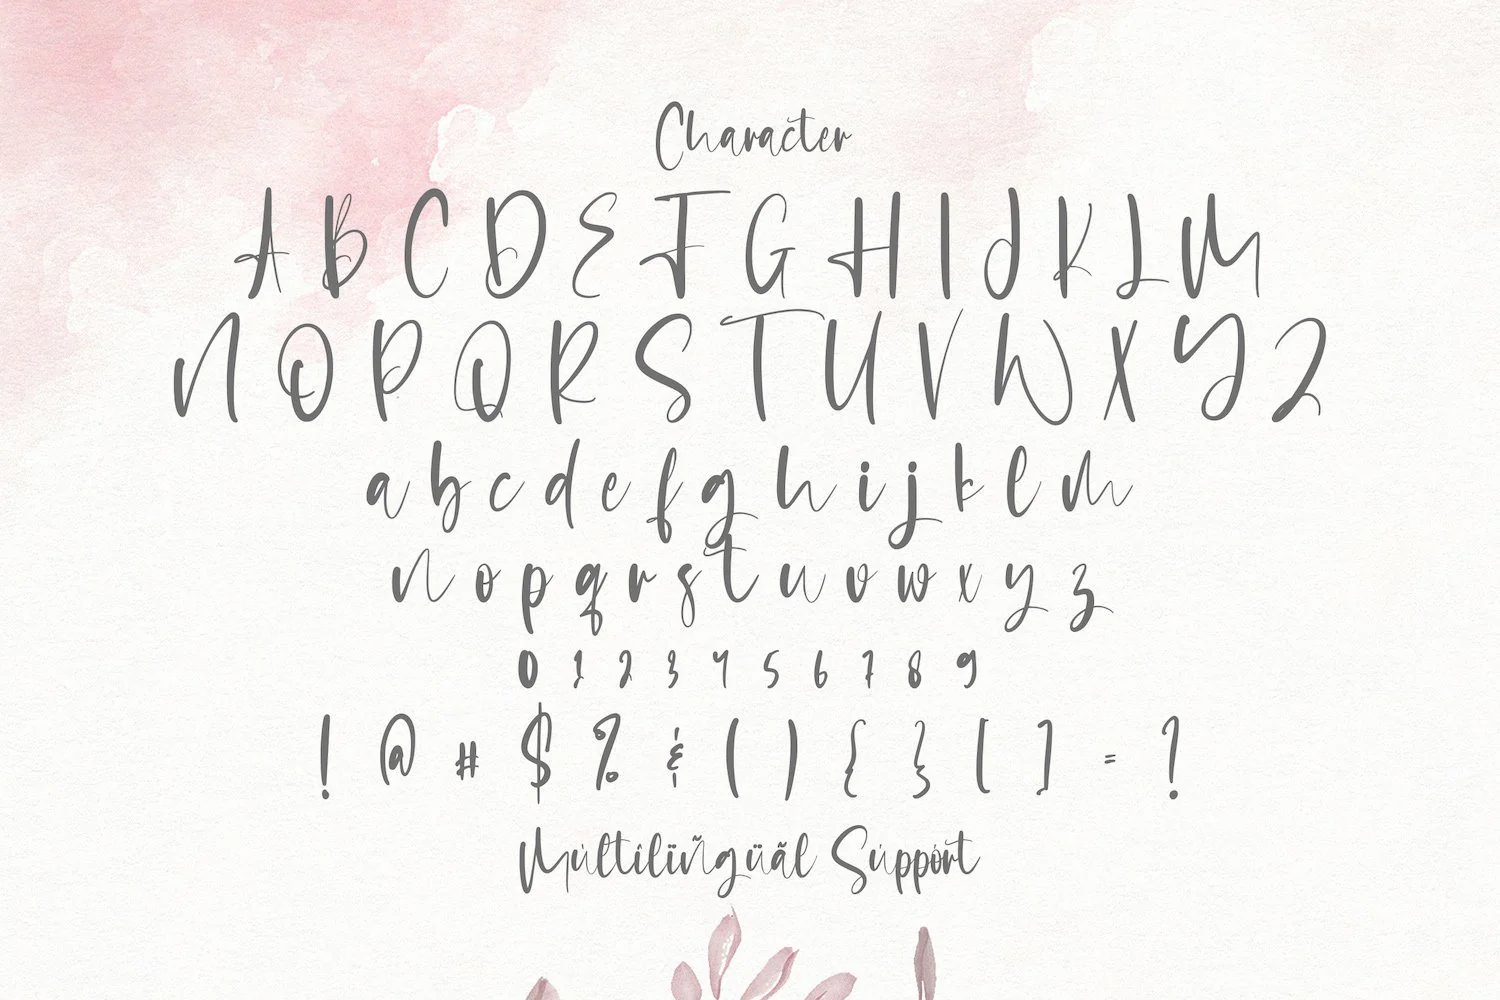 Character
A B C D E F G H I J K L M
N O P Q R S T U V W X Y Z
a b c d e f g h i j k l m
n o p q r s t u v w x y z
0 1 2 3 4 5 6 7 8 9
! @ # $ % & ( ) { } [ ] = ?
Múltîlïñgüãl Súppórt